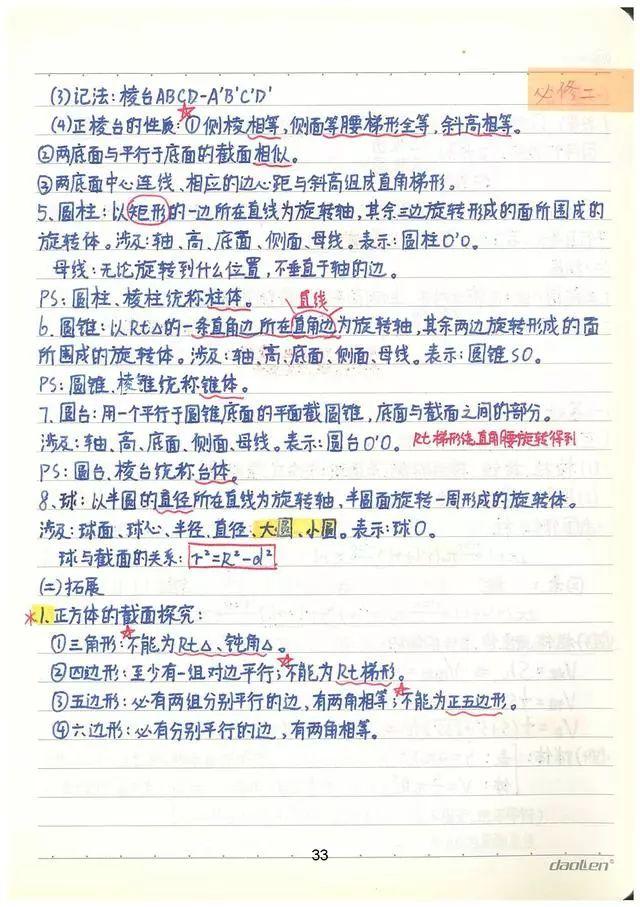 必修二
(3)记法:棱台ABCD-A'B'C'D'
(4)正棱台的性质:①侧棱相等,侧面等腰梯形全等,斜高相等。
②两底面与平行于底面的截面相似。
③两底面中心连线、相应的边心距与斜高组成直角梯形。
5、圆柱:以矩形的一边所在直线为旋转轴,其余三边旋转形成的面所围成的
旋转体。涉及:轴、高、底面、侧面、母线。表示:圆柱O'O。
母线:无论旋转到什么位置,不垂直于轴的边。
PS:圆柱、棱柱统称柱体。
直线
6、圆锥:以Rt△的一条直角边所在直角边为旋转轴,其余两边旋转形成的面
所围成的旋转体。涉及:轴、高、底面、侧面、母线。表示:圆锥SO。
PS:圆锥、棱锥统称锥体。
7、圆台:用一个平行于圆锥底面的平面截圆锥,底面与截面之间的部分。
涉及:轴、高、底面、侧面、母线。表示:圆台O'O。Rt梯形绕直角腰旋转得到
PS:圆台、棱台统称台体。
8、球:以半圆的直径所在直线为旋转轴,半圆面旋转一周形成的旋转体。
涉及:球面、球心、半径、直径、大圆、小圆。表示:球O。
球与截面的关系:r²=R²-d²
(二)拓展
*1.正方体的截面探究:
①三角形:不能为Rt△、钝角△。
②四边形:至少有一组对边平行;不能为Rt梯形。
③五边形:必有两组分别平行的边,有两角相等;不能为正五边形。
④六边形:必有分别平行的边,有两角相等。
33
daolien